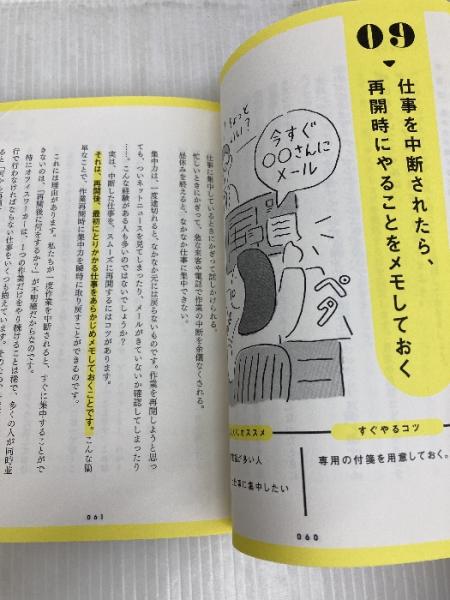 09
仕事を中断されたら、
再開時にやることをメモしておく
ちょっと
いい？
今すぐ
〇〇さんに
メール
ペタ
オススメ
多い人
に集中したい
すぐやるコツ
専用の付箋を用意しておく。
060
仕事に集中しているときにかぎって話しかけられる。
忙しいときにかぎって、急な来客や電話で作業の中断を余儀なくされる。
昼休みを終えると、なかなか仕事に集中できない。
集中力は、一度途切れると、なかなか元には戻らないものです。作業を再開しようと思っ
ても、ついネットニュースを見てしまったり、メールがきていないか確認してしまったり
……。こんな経験がある人も多いのではないでしょうか？
実は、中断した仕事をスムーズに再開するにはコツがあります。
それは、再開後、最初にとりかかる仕事をあらかじめメモしておくことです。こんな簡
単なことで、作業再開時に集中力を瞬時に取り戻すことができるのです。
これには理由があります。私たちが一度作業を中断されると、すぐに集中することがで
きないのは、「再開後に何をするか？」が不明確だからなのです。
特にオフィスワーカーは、1つの作業だけをやり続けることは稀で、多くの人が同時並
行で行わなければならない仕事をいくつも抱えています。そのため、
061